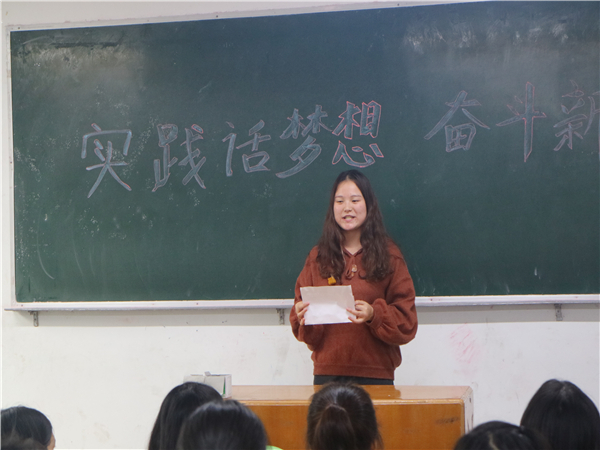 实践话梦想 奋斗新